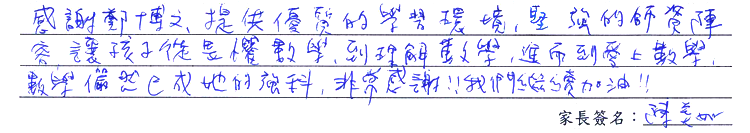 感謝鄭博文,提供優質的學習環境,堅強的師資陣
容,讓孩子從畏懼數學,到理解數學,進而到愛上數學,
數學儼然已成她的強科,非常感謝!!我們繼續加油!!
家長簽名:陳美如